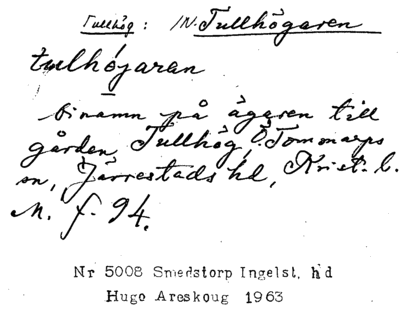 Tullhög: IN. Tullhögaren
tulhøjaran
binamn på ägaren till
gården Tullhög, Ö. Tommarps
sn, Järrestads hd, Krist. l.
M. f. 94.
Nr 5008 Smedstorp Ingelst. hd
Hugo Areskoug 1963